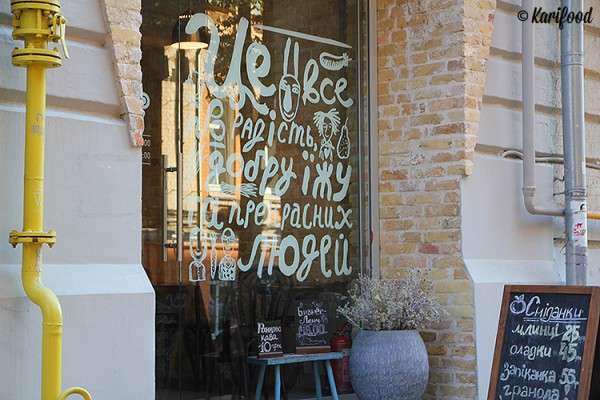 © Karifood
Це все
про радість,
добру їжу
та прекрасних
людей
Ранкова
кава
10 грн
Бізнес-
Ланч
Сніданки
млинці 25
оладки 45
запіканка 55
гранола